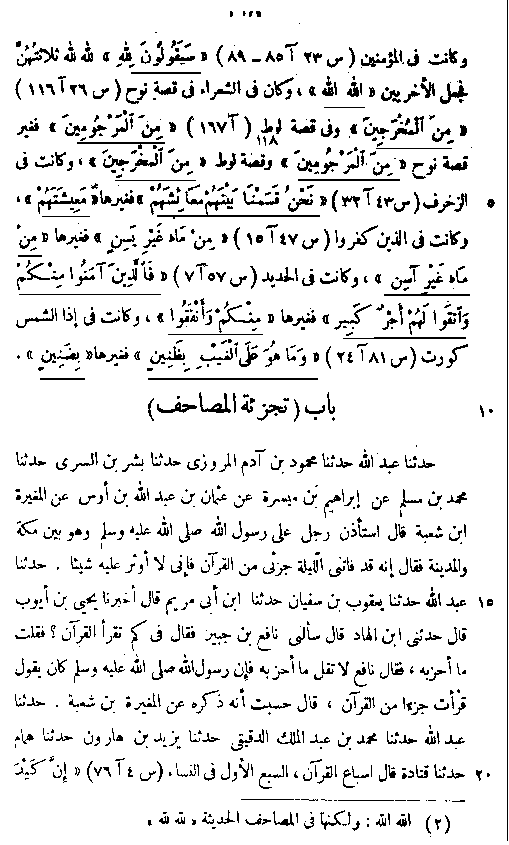 وكانت فى المؤمنين (س ٢٣ آ ٨٥ – ٨٩) « سَيَقُولُونَ لِلّٰهِ » لله لله ثلاثتُهُنَّ
فجعل الأخريين « الله الله » ، وكان فى الشعراء فى قصة نوح (س ٢٦ آ ١١٦)
« مِنَ ٱلْمُخْرَجِينَ » وفى قصة لوط (آ ١٦٧) « مِنَ ٱلْمَرْجُومِينَ » فغير
١١٨
قصة نوح « مِنَ ٱلْمَرْجُومِينَ » وقصة لوط « مِنَ ٱلْمُخْرَجِينَ » ، وكانت فى
الزخرف (س ٤٣ آ ٣٢) « نَحْنُ قَسَمْنَا بَيْنَهُمْ مَعَائِشَهُمْ » فغيرها « مَعِيشَتَهُمْ » ، ٥
وكانت فى الذين كفروا (س ٤٧ آ ١٥) « مِنْ مَاء غَيْرِ يَسِنٍ » فغيرها « مِنْ
مَاء غَيْرِ آسِنٍ » ، وكانت فى الحديد (س ٥٧ آ ٧) « فَٱلَّذِينَ آمَنُوا مِنْكُمْ
وَٱتَّقَوا لَهُمْ أَجْرٌ كَبِير » فغيرها « مِنْكُمْ وَأَنْفَقُوا » ، وكانت فى إذا الشمس
كورت (س ٨١ آ ٢٤) « وَمَا هُوَ عَلَى ٱلْغَيْبِ بِظَنِينٍ » فغيرها « بِضَنِينٍ » .
باب (تجزئة المصاحف) ١٠
حدثنا عبد الله حدثنا محمود بن آدم المروزى حدثنا بشر بن السرى حدثنا
محمد بن مسلم عن إبراهيم بَن ميسرة عن عثمان بن عبد الله بن أوس عن المغيرة
ابن شعبة قال استأذن رجل على رسول الله صلى الله عليه وسلم وهو بين مكة
والمدينة فقال إنه قد فاتنى الليلة جزئى من القرآن فإنى لا أوثر عليه شيئا . حدثنا
عبد الله حدثنا يعقوب بن سفيان حدثنا ابن أبى مريم قال أخبرنا يحيى بن أيوب ١٥
قال حدثنى ابن الهاد قال سألنى نافع بن جبير فقال فى كم تقرأ القرآن ؟ فقلت
ما أحزبه ، فقال نافع لا تقل ما أحزبه فإن رسول الله صلى الله عليه وسلم كان يقول
قرأت جزءا من القرآن ، قال حسبت أنه ذكره عن المغيرة بن شعبة . حدثنا
عبد الله حدثنا محمد بن عبد الملك الدقيقى حدثنا يزيد بن هارون حدثنا همام
حدثنا قتادة قال اسباع القرآن ، السبع الأول فى النساء (س ٤ آ ٧٦) « إنَّ كَيْدَ ٢٠
(٢) الله الله : ولكنها فى المصاحف الحديثة « لله لله »